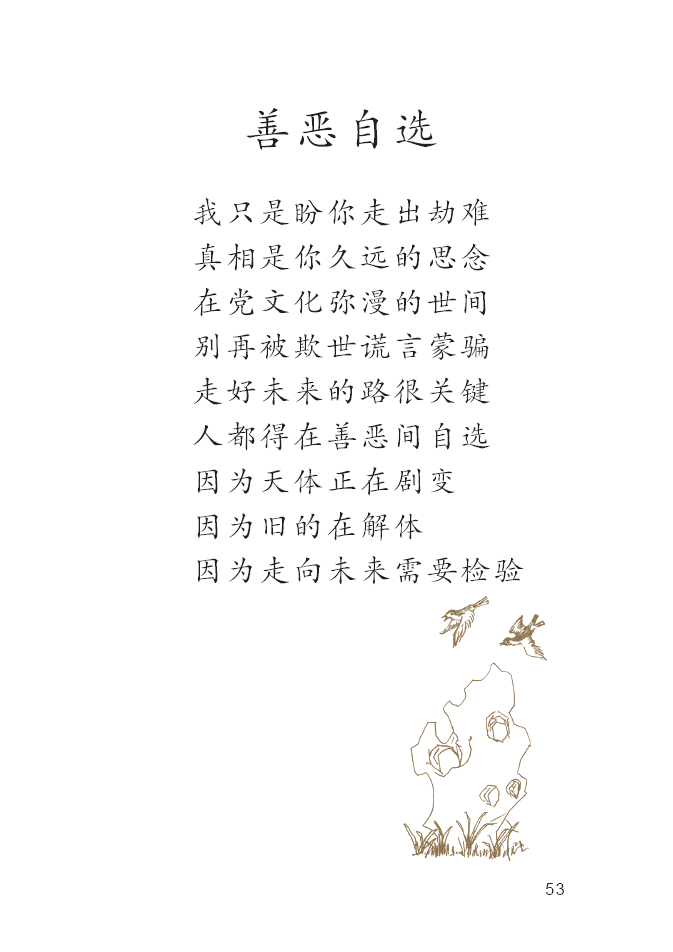 善恶自选
我只是盼你走出劫难
真相是你久远的思念
在党文化弥漫的世间
别再被欺世谎言蒙骗
走好未来的路很关键
人都得在善恶间自选
因为天体正在剧变
因为旧的在解体
因为走向未来需要检验
53